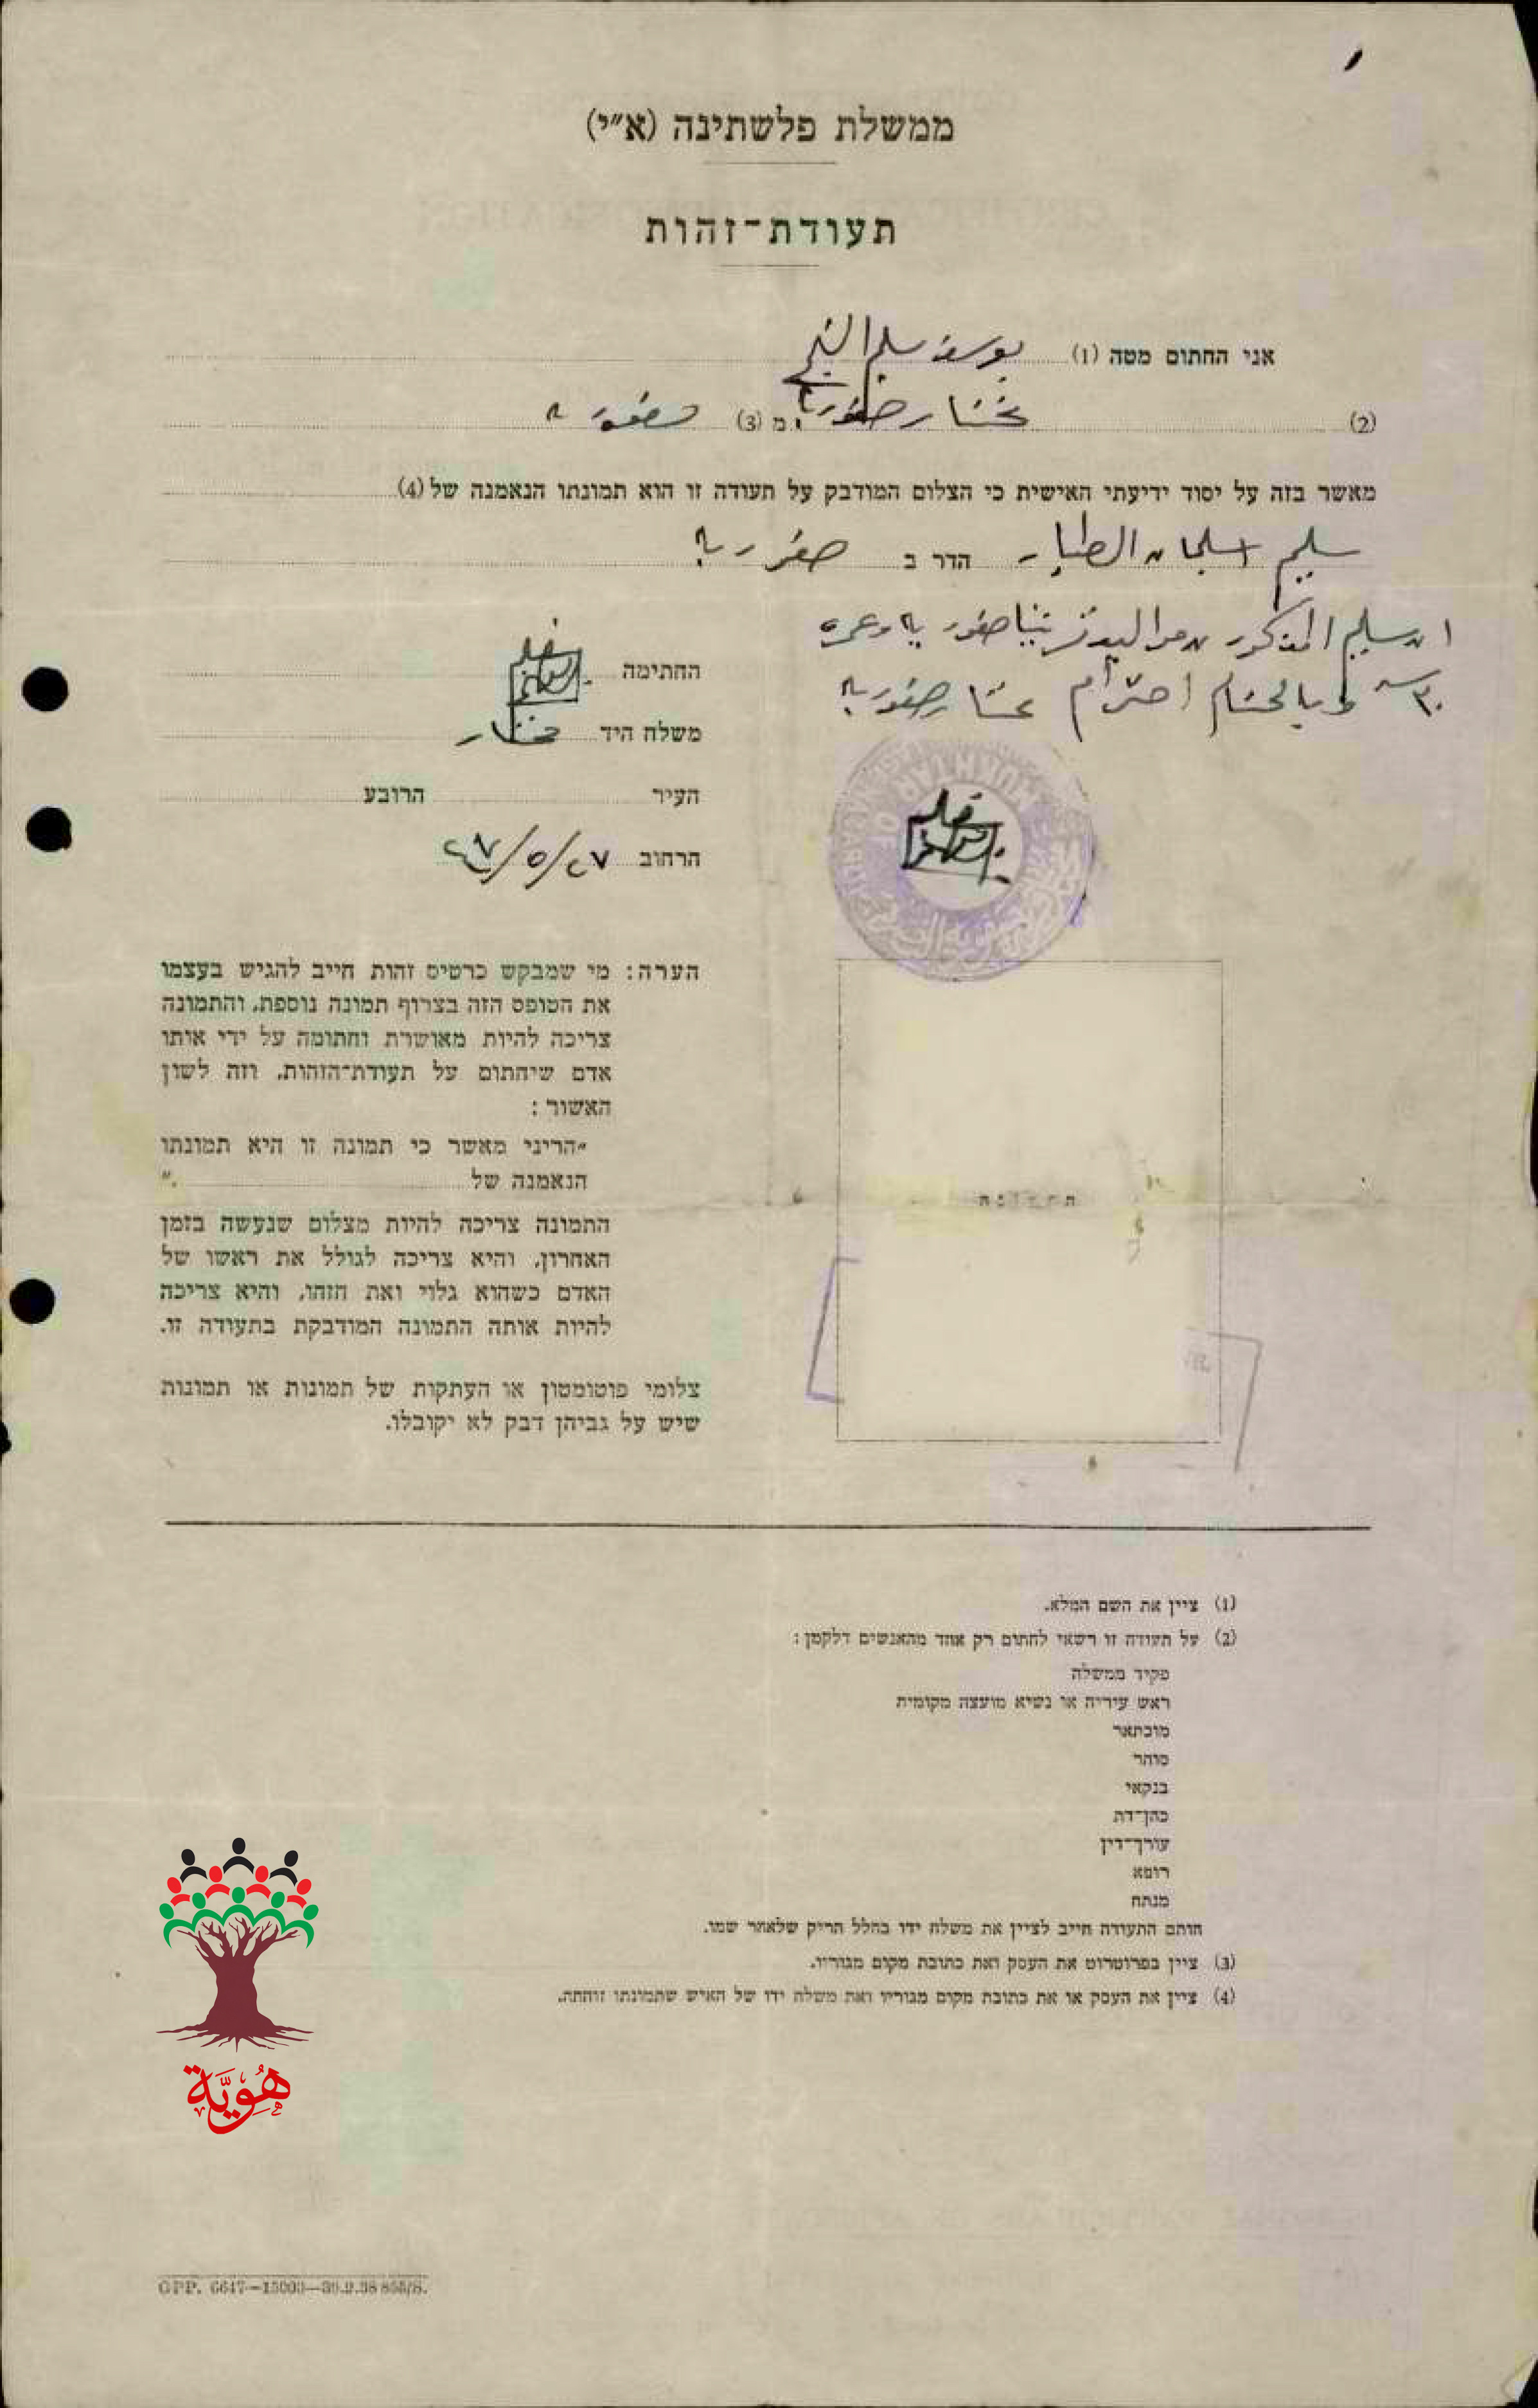 ממשלת פלשתינה (א״י)
תעודת-זהות
אני החתום מטה (1) يوسف سليم
(2) مختار صفورية מ (3) صفورية
מאשר בזה על יסוד ידיעתי האישית כי הצלום המודבק על תעודה זו הוא תמונתו הנאמנה של (4)
سليم سليمان הדר ב صفورية
ان سليم المذكور صفورية وعمره
٣٠ سنة وبالختام احترام مختار صفورية
החתימה
משלח היד مختار
העיר הרובע
הרחוב
MUKHTAR OF
הערה: מי שמבקש כרטיס זהות חייב להגיש בעצמו
את הטופס הזה בצרוף תמונה נוספת, והתמונה
צריכה להיות מאושרת וחתומה על ידי אותו
אדם שיחתום על תעודת-הזהות, וזה לשון
האשור:
״הריני מאשר כי תמונה זו היא תמונתו
הנאמנה של .״
התמונה צריכה להיות מצלום שנעשה בזמן
האחרון, והיא צריכה לגולל את ראשו של
האדם כשהוא גלוי ואת חזהו, והיא צריכה
להיות אותה התמונה המודבקת בתעודה זו.
צלומי פוטומטון או העתקות של תמונות או תמונות
שיש על גביהן דבק לא יקובלו.
התמונה
(1) ציין את השם המלא.
(2) על תעודה זו רשאי לחתום רק אחד מהאנשים דלקמן:
פקיד ממשלה
ראש עיריה או נשיא מועצה מקומית
מוכתאר
סוחר
בנקאי
כהן-דת
עורך-דין
רופא
מנתח
חותם התעודה חייב לציין את משלח ידו בחלל הריק שלאחר שמו.
(3) ציין בפרוטרוט את העסק ואת כתובת מקום מגוריו.
(4) ציין את העסק או את כתובת מקום מגוריו ואת משלח ידו של האיש שתמונתו זוהתה.
هُوِيَّة
GPP. 6647—15000—30.9.38 855/S.